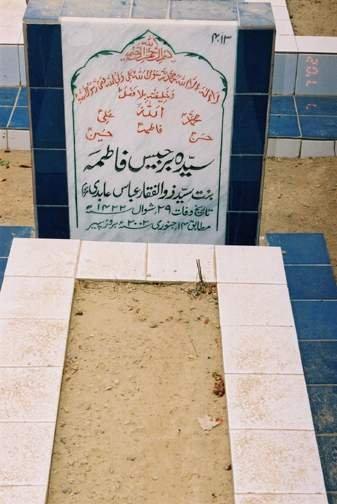 م/۱۳
بسم الله الرحمن الرحيم
لا اله الا الله محمد رسول الله علی ولی الله وصی رسول الله
و خلیفته بلا فصل
محمدؐ الله علیؑ
حسنؑ فاطمہؑ حسینؑ
سیدہ برجیس فاطمہ
بنت سید ذوالفقار عباس عابدی
تاریخ وفات ۲۹ شوال ۱۴۲۲ھ
مطابق ۱۴ جنوری ۲۰۰۲ء بروز پیر